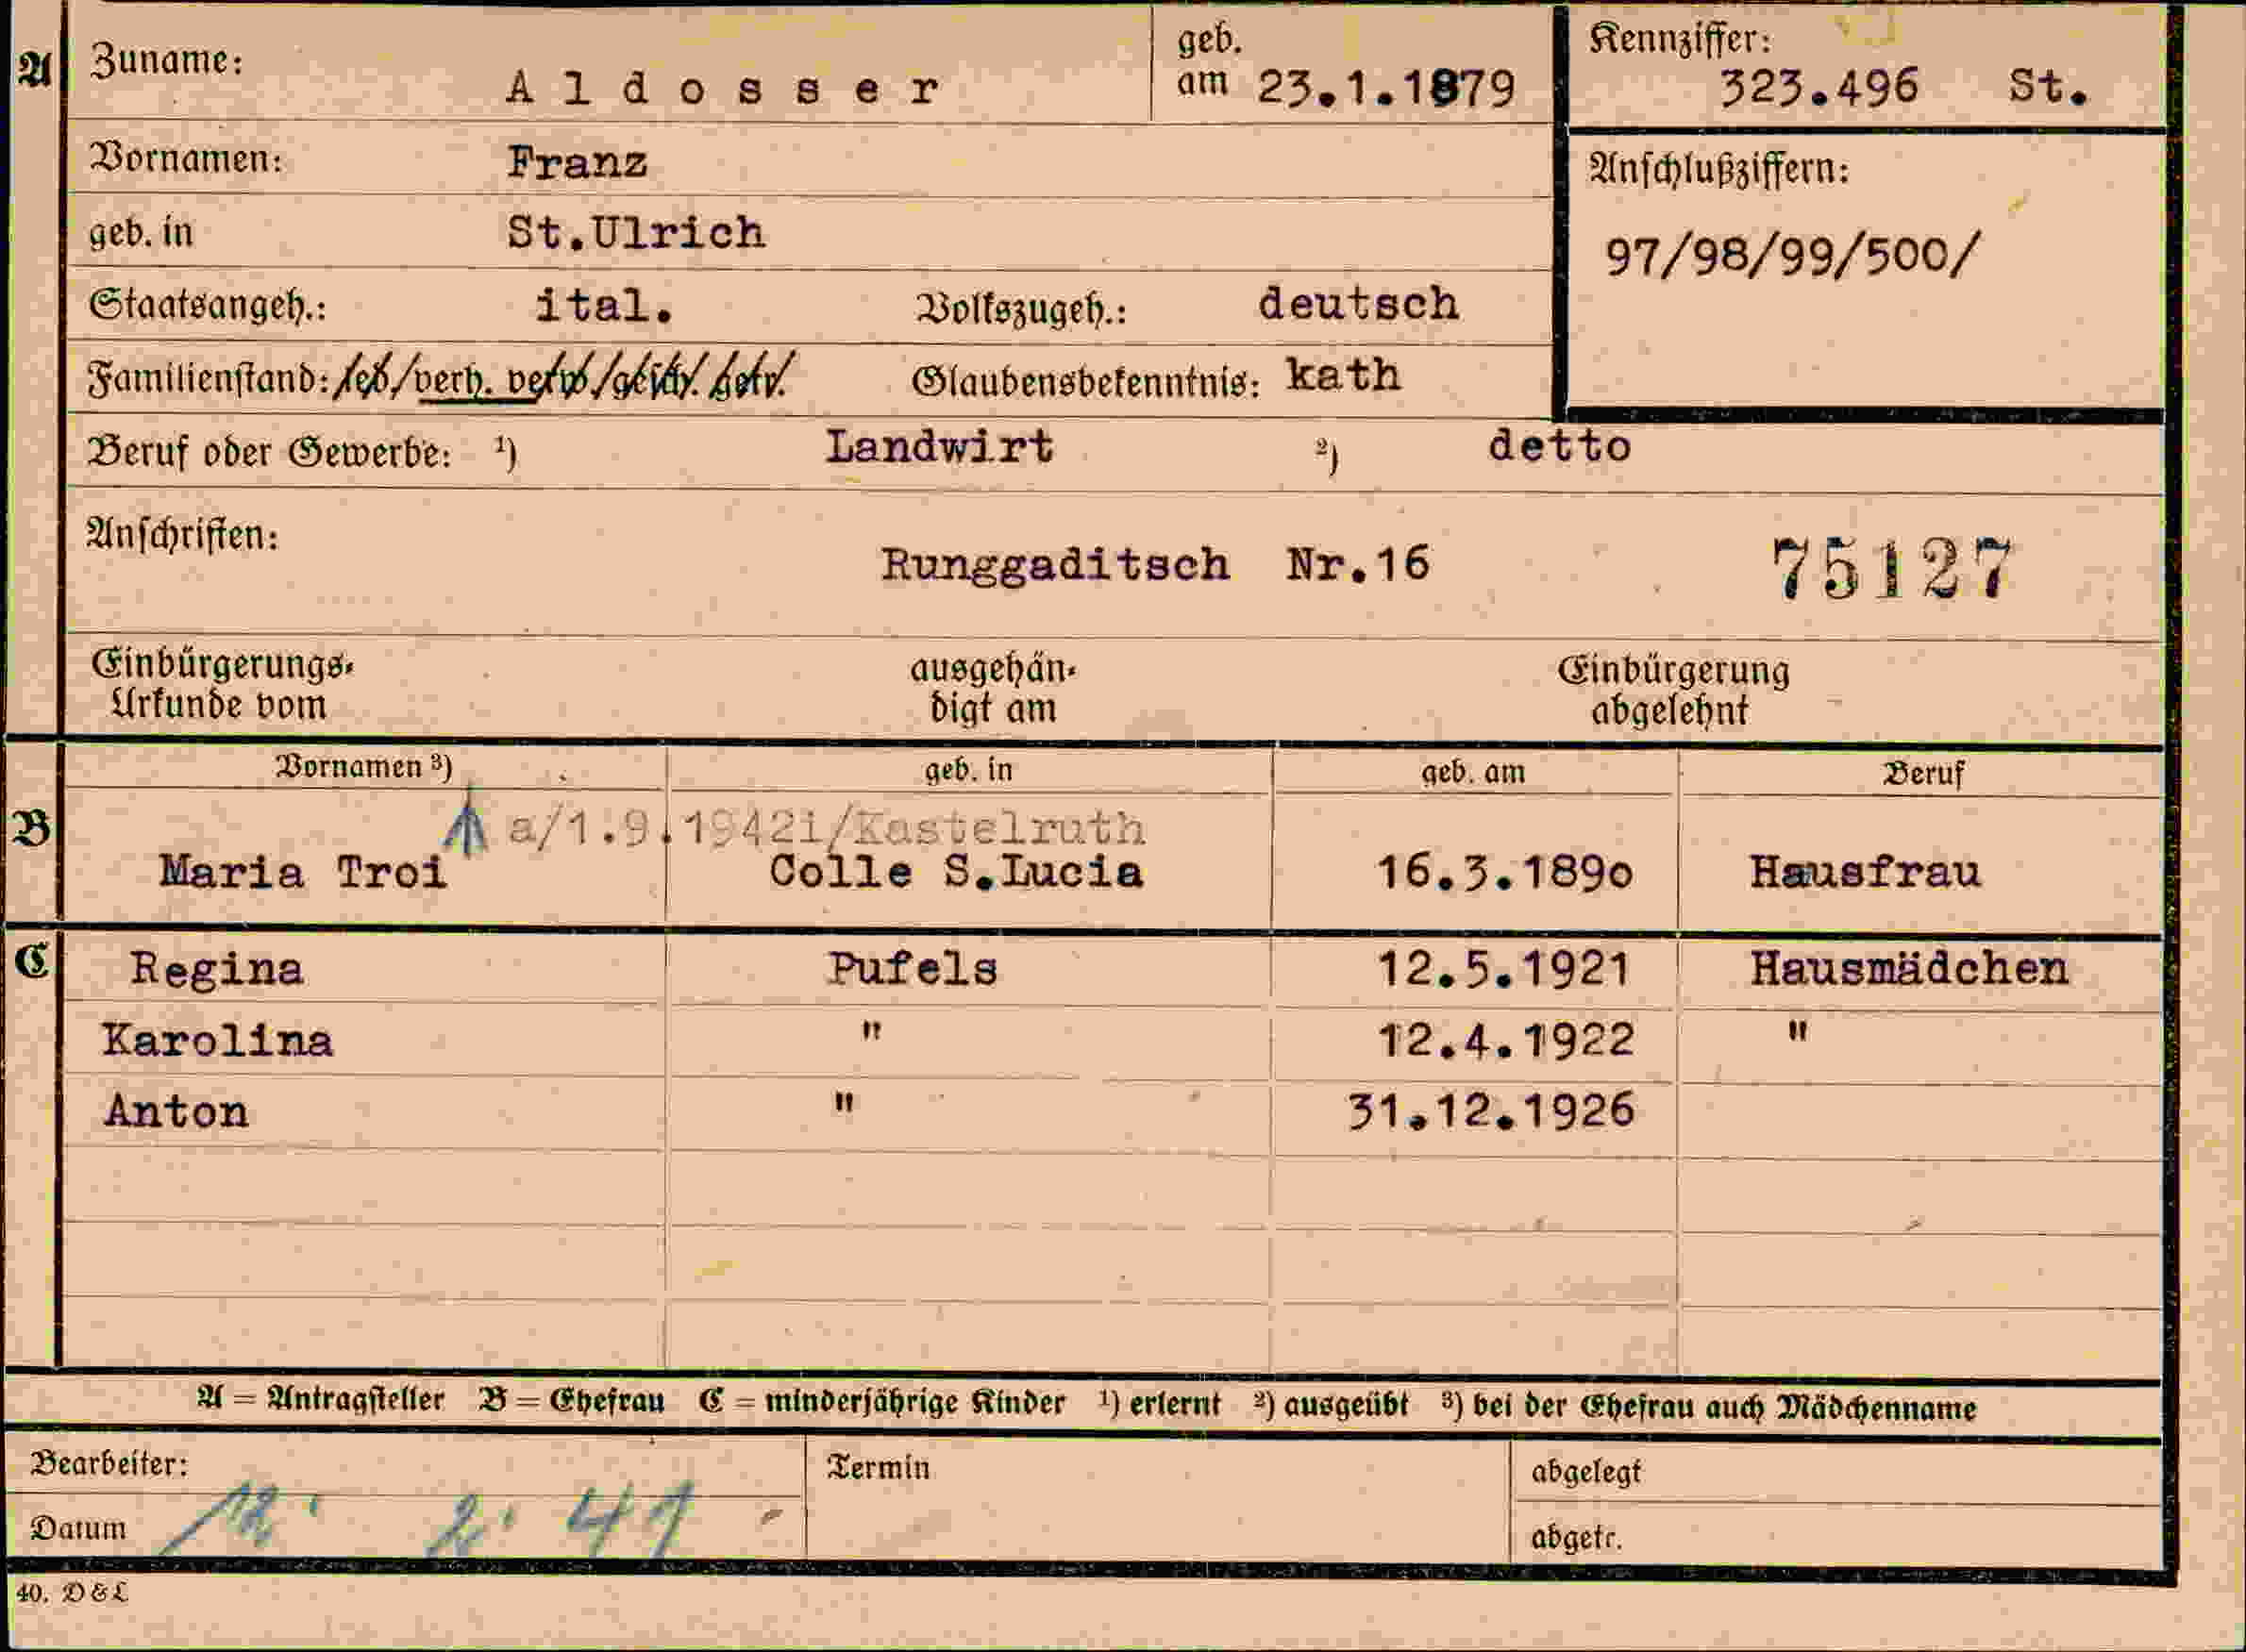 A Zuname: Aldosser geb. am 23.1.1879 Kennziffer: 323.496 St.
Vornamen: Franz Anschlußziffern:
geb. in St.Ulrich 97/98/99/500/
Staatsangeh.: ital. Volkszugeh.: deutsch
Familienstand: led./verh. verw./gesch. getr. Glaubensbekenntnis: kath
Beruf oder Gewerbe: ¹) Landwirt ²) detto
Anschriften: Runggaditsch Nr.16 75127
Einbürgerungs- ausgehän- Einbürgerung
Urkunde vom digt am abgelehnt
Vornamen ³) geb. in geb. am Beruf
B a/1.9.1942i/Kastelruth
Maria Troi Colle S.Lucia 16.3.1890 Hausfrau
C Regina Pufels 12.5.1921 Hausmädchen
Karolina " 12.4.1922 "
Anton " 31.12.1926
A = Antragsteller B = Ehefrau C = minderjährige Kinder ¹) erlernt ²) ausgeübt ³) bei der Ehefrau auch Mädchenname
Bearbeiter: Termin abgelegt
Datum 12. 2. 41 abgetr.
40. D & L